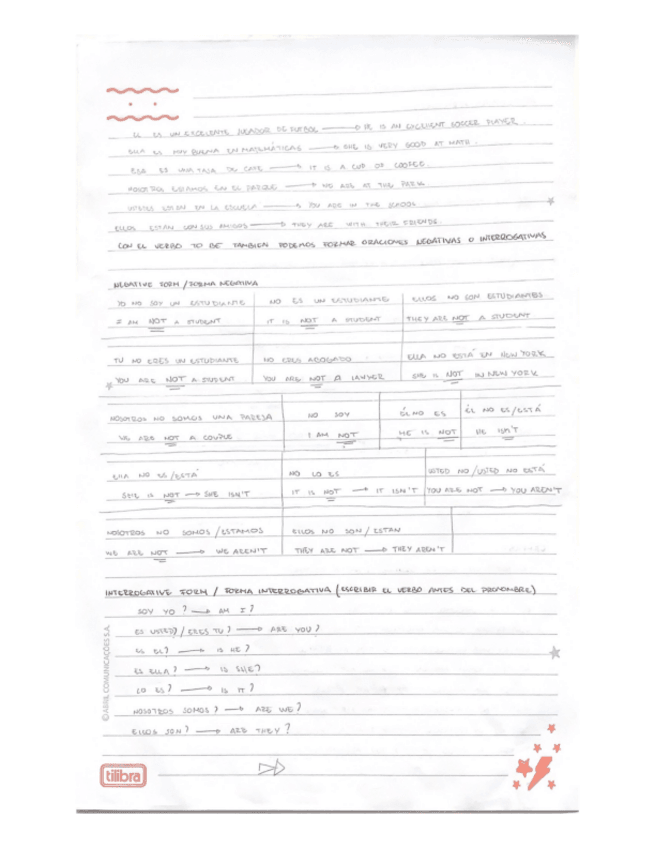 EL ES UN EXCELENTE JUGADOR DE FUTBOL → HE IS AN EXCELLENT SOCCER PLAYER.
ELLA ES MUY BUENA EN MATEMÁTICAS → SHE IS VERY GOOD AT MATH.
ESA ES UNA TAZA DE CAFE → IT IS A CUP OF COOFEE.
NOSOTROS ESTAMOS EN EL PARQUE → WE ARE AT THE PARK
USTEDES ESTAN EN LA ESCUELA → YOU ARE IN THE SCHOOL
ELLOS ESTÁN CON SUS AMIGOS → THEY ARE WITH THEIR FRIENDS.
CON EL VERBO TO BE TAMBIEN PODEMOS FORMAR ORACIONES NEGATIVAS O INTERROGATIVAS
NEGATIVE FORM / FORMA NEGATIVA
YO NO SOY UN ESTUDIANTE NO ES UN ESTUDIANTE ELLOS NO SON ESTUDIANTES
I AM NOT A STUDENT IT IS NOT A STUDENT THEY ARE NOT A STUDENT
TU NO ERES UN ESTUDIANTE NO ERES ABOGADO ELLA NO ESTÁ EN NEW YORK
YOU ARE NOT A STUDENT YOU ARE NOT A LAWYER SHE IS NOT IN NEW YORK
NOSOTROS NO SOMOS UNA PAREJA NO SOY ÉL NO ES ÉL NO ES/ESTÁ
WE ARE NOT A COUPLE I AM NOT HE IS NOT HE ISN'T
ELLA NO ES/ESTÁ NO LO ES USTED NO/USTED NO ESTÁ
SHE IS NOT → SHE ISN'T IT IS NOT → IT ISN'T YOU ARE NOT → YOU AREN'T
NOSOTROS NO SOMOS/ESTAMOS ELLOS NO SON/ESTAN
WE ARE NOT → WE AREN'T THEY ARE NOT → THEY AREN'T
INTERROGATIVE FORM / FORMA INTERROGATIVA (ESCRIBIR EL VERBO ANTES DEL PRONOMBRE)
SOY YO? → AM I?
ES USTED?/ERES TU? → ARE YOU?
ES EL? → IS HE?
ES ELLA? → IS SHE?
LO ES? → IS IT?
NOSOTROS SOMOS? → ARE WE?
ELLOS SON? → ARE THEY?
©ABRIL COMUNICAÇÕES S.A.
tilibra